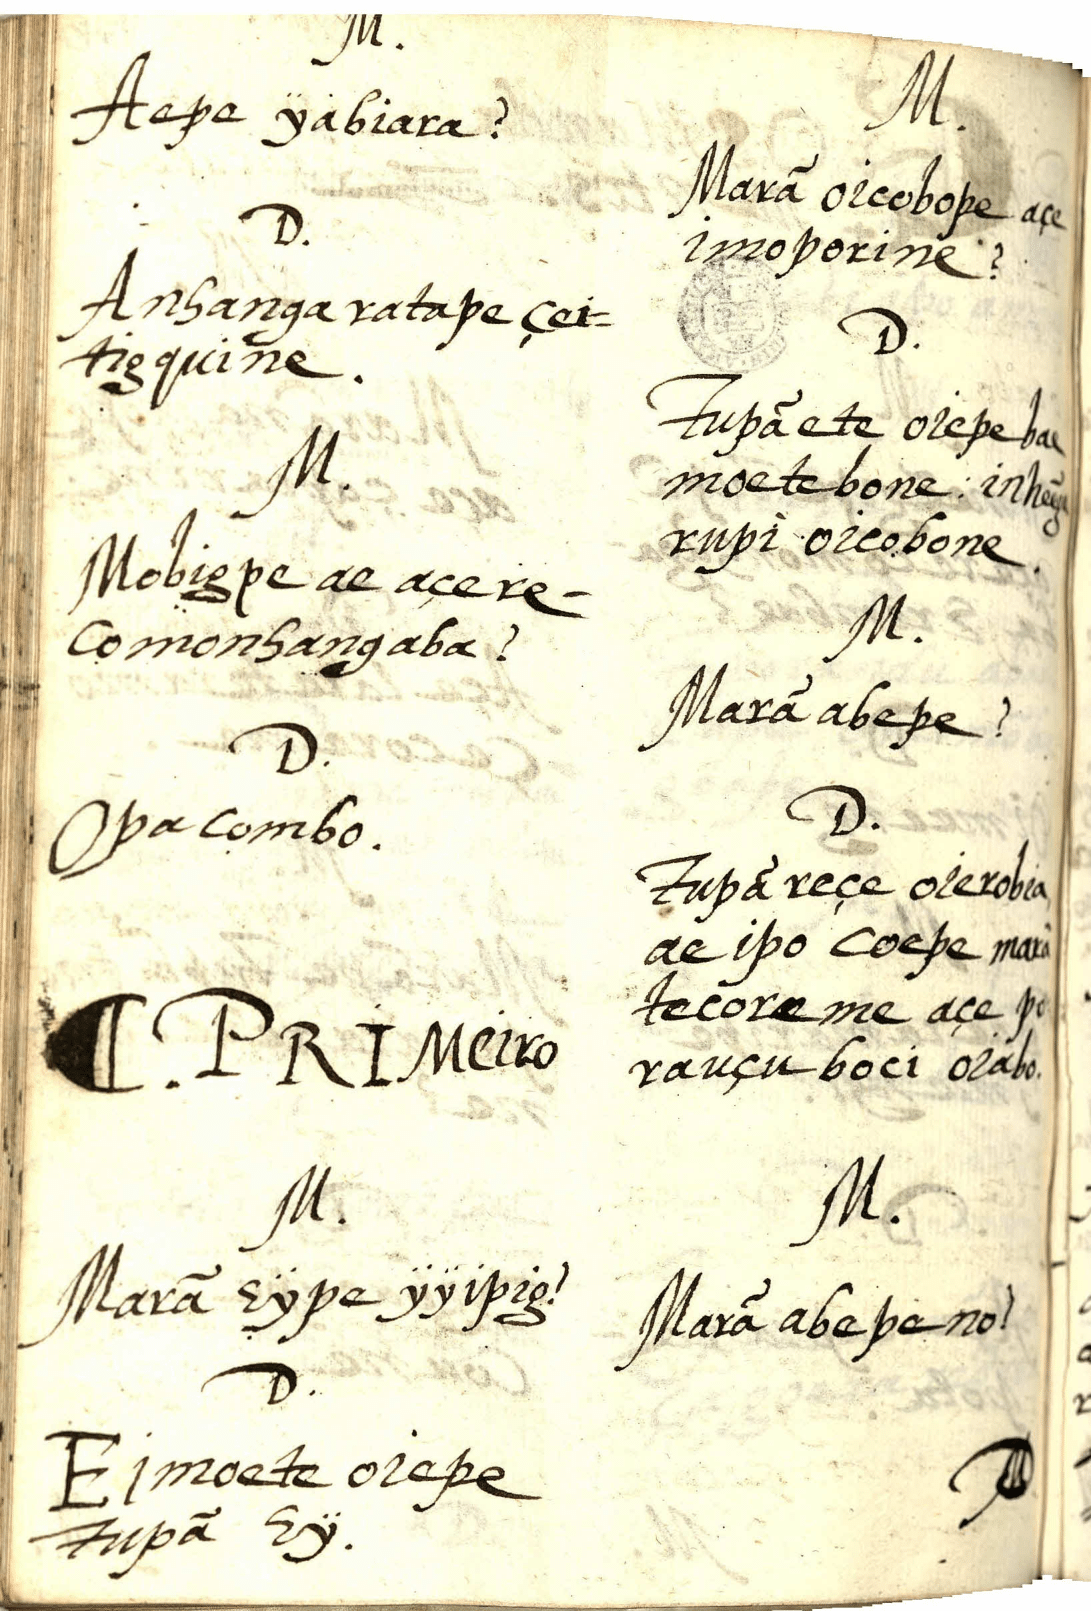 M.
Aepe ÿabiara?
D.
Anhangaratape çei=
tigquine.
M.
Mobigpe ae açere-
comonhangaba?
D.
Opacombo.
C. PRIMeiro
M.
Marã eÿpe ÿÿipig?
D.
Eimoete oiepe
tupã eÿ.
M.
Marã oicobope açe
imoporine?
D.
Tupã ete oiepe bae
moetebone: inheẽga
rupi oicobone.
M.
Marã abepe?
D.
Tupã reçe oierobia
ae ipo coepe marã
tecoreme açe po
rauçuboci oiabo.
M.
Marã abepe no?
D